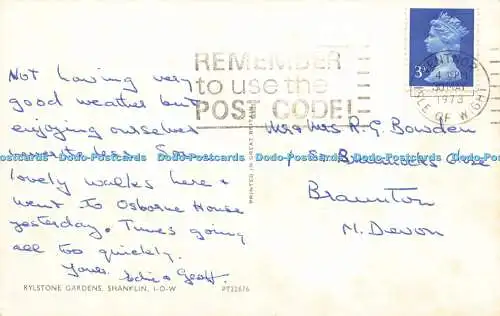 Not having very
good weather but
enjoying ourselves
nevertheless. Some
lovely walks here &
went to Osborne House
yesterday. Times going
all too quickly.
Yours. Edie & Geoff.
RYLSTONE GARDENS, SHANKLIN, I-O-W
PT22676
PRINTED IN GREAT BRITAIN
REMEMBER
to use the
POST CODE!
3P
VENTNOR
4 PM
30 MAY
1973
ISLE OF WIGHT
Mr & Mrs R. G. Bowden
Close
Braunton
N. Devon
Dodo-Postcards Dodo-Postcards Dodo-Postcards Dodo-Postcards Dodo-Postcards Dodo-Postcards